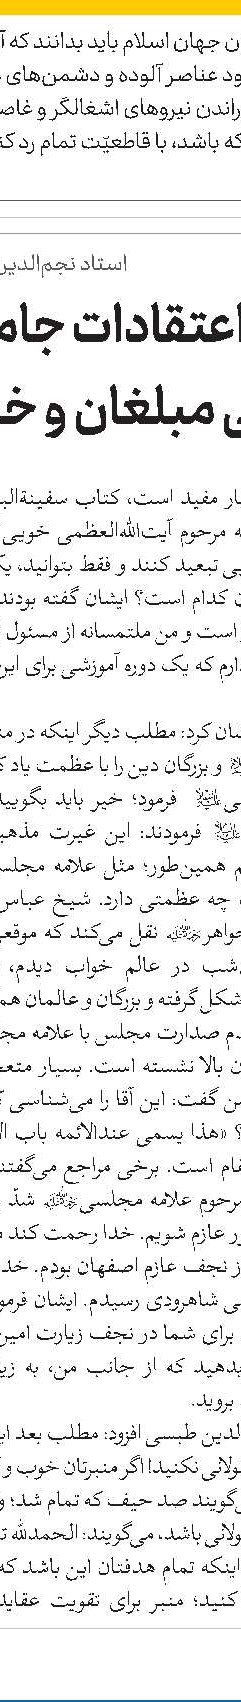 ن جهان اسلام باید بدانند که آ
ود عناصر آلوده و دشمن‌های
راندن نیروهای اشغالگر و غاص
که باشد، با قاطعیّت تمام رد کن
استاد نجم‌الدین
اعتقادات جام
ی مبلغان و خ
ار مفید است، کتاب سفینةالب
ه مرحوم آیت‌الله‌العظمی خویی
یی تبعید کنند و فقط بتوانید، یک
ن کدام است؟ ایشان گفته بودند
است و من ملتمسانه از مسئول
دارم که یک دوره آموزشی برای این
شان کرد: مطلب دیگر اینکه در من
و بزرگان دین را با عظمت یاد ک
ی علیه‌السلام فرمود؛ خیر باید بگویید
فرمودند: این غیرت مذهب
م همین‌طور؛ مثل علامه مجلس
چه عظمتی دارد. شیخ عباس
جواهر نقل می‌کند که موقعی
شب در عالم خواب دیدم،
شکل گرفته و بزرگان و عالمان هم
دم صدارت مجلس با علامه مج
ن بالا نشسته است. بسیار متعج
ن گفت: این آقا را می‌شناسی
؟ «هذا یسمی عندالائمه باب ال
قام است. برخی مراجع می‌گفتند
مرحوم علامه مجلسی شدّ
ر عازم شویم. خدا رحمت کند
ز نجف عازم اصفهان بودم. خد
ی شاهرودی رسیدم. ایشان فرمو
برای شما در نجف زیارت امین
بدهید که از جانب من، به زیا
بروید.
لدین طبسی افزود: مطلب بعد ای
ولانی نکنید! اگر منبرتان خوب و
گویند صد حیف که تمام شد؛ و
ولانی باشد، می‌گویند: الحمدلله ت
اینکه تمام هدفتان این باشد که
کنید؛ منبر برای تقویت عقاید